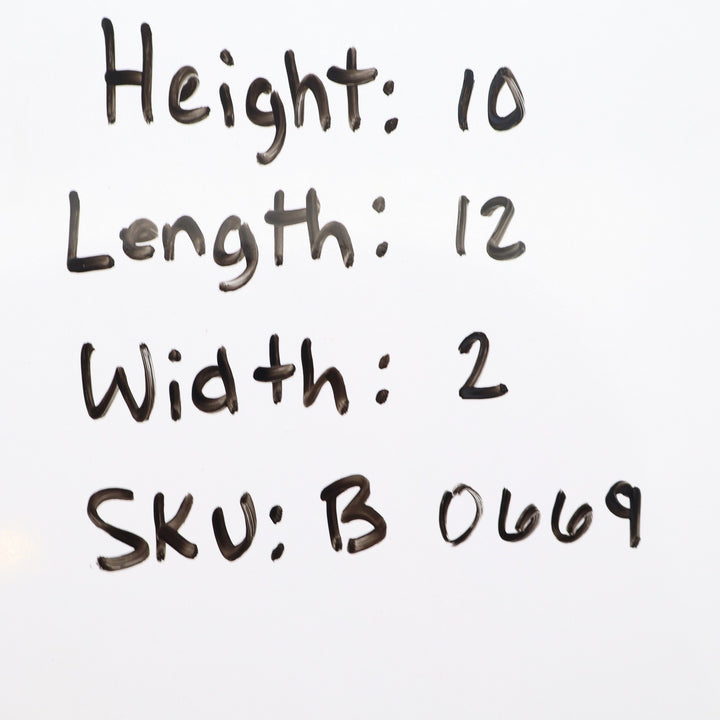 Height: 10
Length: 12
Width: 2
SKU: B 0669